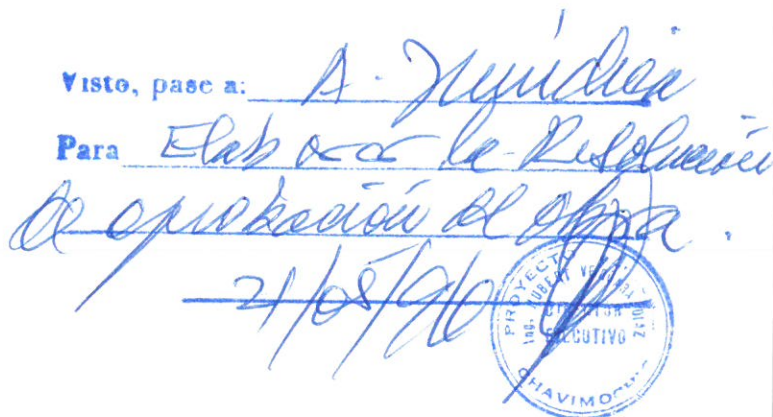 Visto, pase a: A. Jurídica
Para Elaborar la Resolución
de aprobación de obra.
21/05/90
PROYECTO
Ing. HUBERT
DIRECTOR
EJECUTIVO
CHAVIMOCHIC